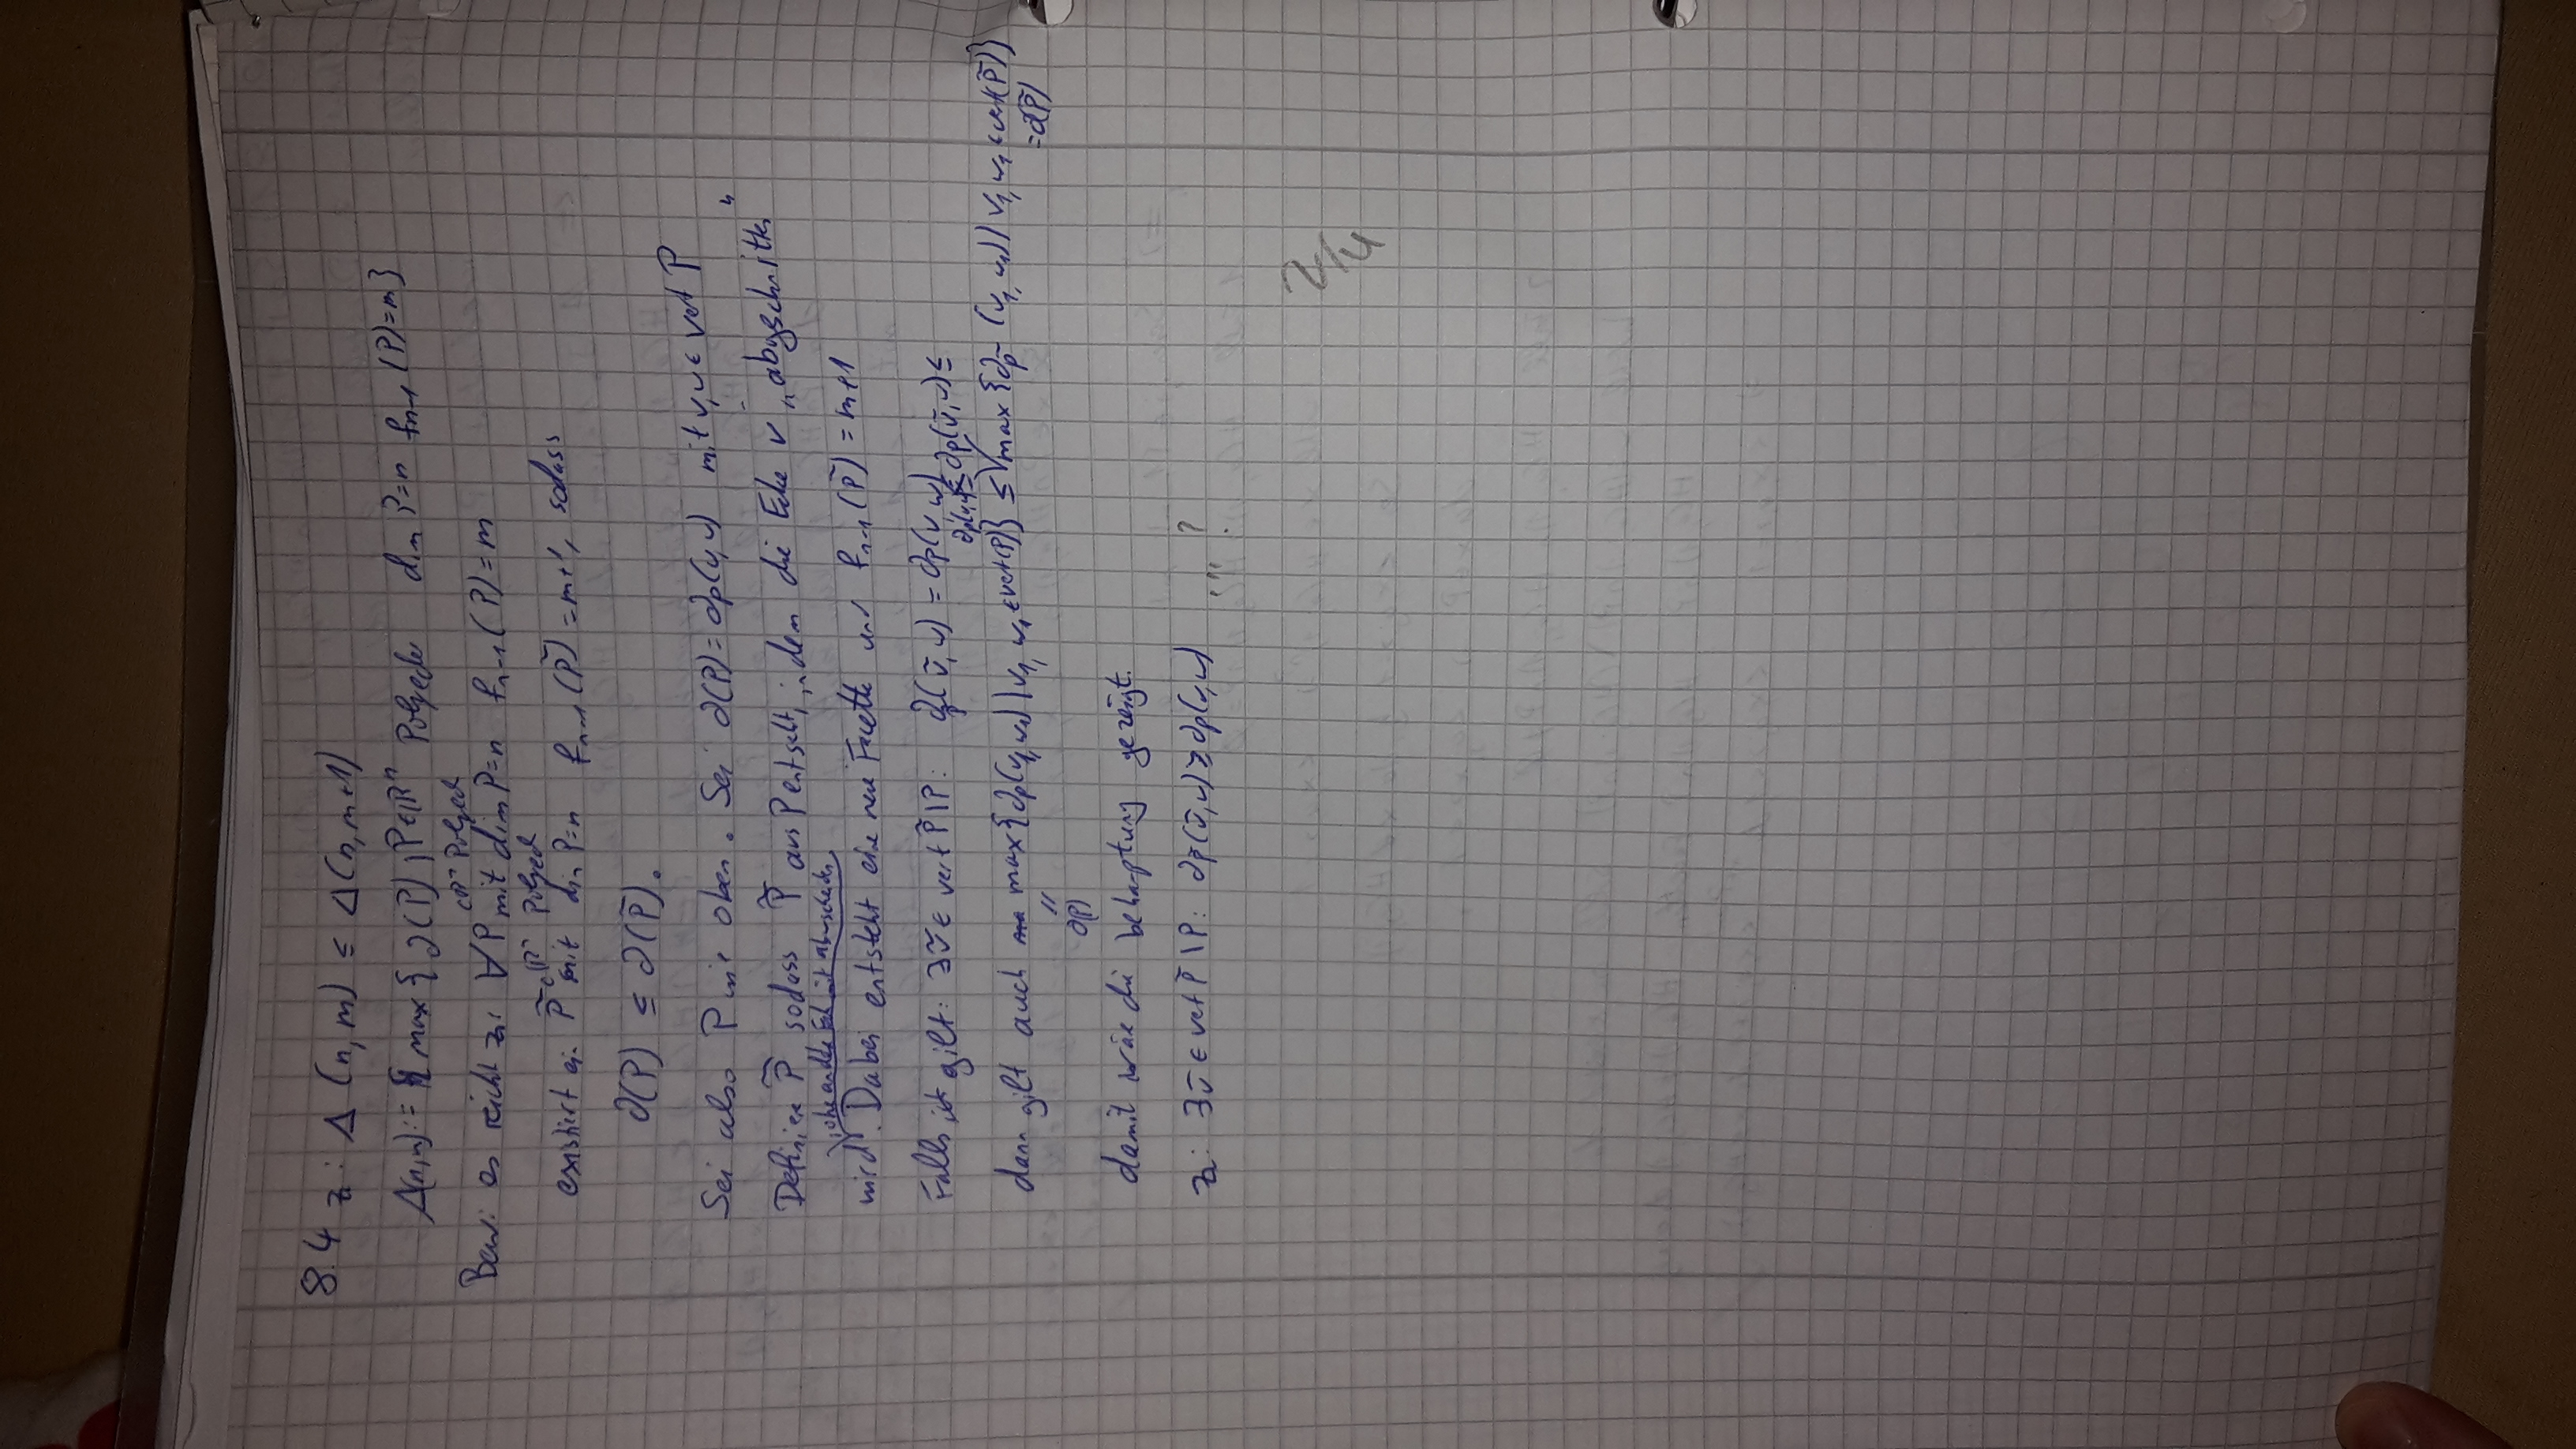 8.4 z: Δ(n,m) ≤ Δ(n,m+1)
Δ(n,m):= max{∂(P) | P∈ℝⁿ Polyeder dim P=n fn-1(P)=m}
⊂ℝⁿ Polyed
Bew: es reicht z: ∀P mit dim P=n fn-1(P)=m
⊂ℝⁿ Polyed
existiert ein P̃ mit dim P=n fn-1(P̃)=m+1, sodass
∂(P) ≤ ∂(P̃).
Sei also P wie oben. Sei ∂(P)=∂p(v,u) mit v,u ∈ vert P
Definiere P̃, sodass P̃ aus P entsteht, indem die Ecke v „abgeschnitten"
ohne andere Eck mit abzuschneiden
wird. Dabei entsteht eine neue Facette und fn-1(P̃)=m+1
Falls gilt: ∃ṽ∈ vert P̃\P: ∂p̃(ṽ,u) = ∂p(v,u)
∂p(v,u) ≤ ∂p(ṽ,u) ≤
dann gilt auch max{∂p(v₁,w₁) | v₁,w₁ ∈vert(P)} ≤ max{∂p̃(v₁,w₁) | v₁,w₁ ∈vert(P̃)}
=∂(P̃)
"
∂(P)
damit wäre die behauptung gezeigt.
z: ∃ṽ ∈ vert P̃\P: ∂p̃(ṽ,u) ≥ ∂p(v,u) ... ?
2/4